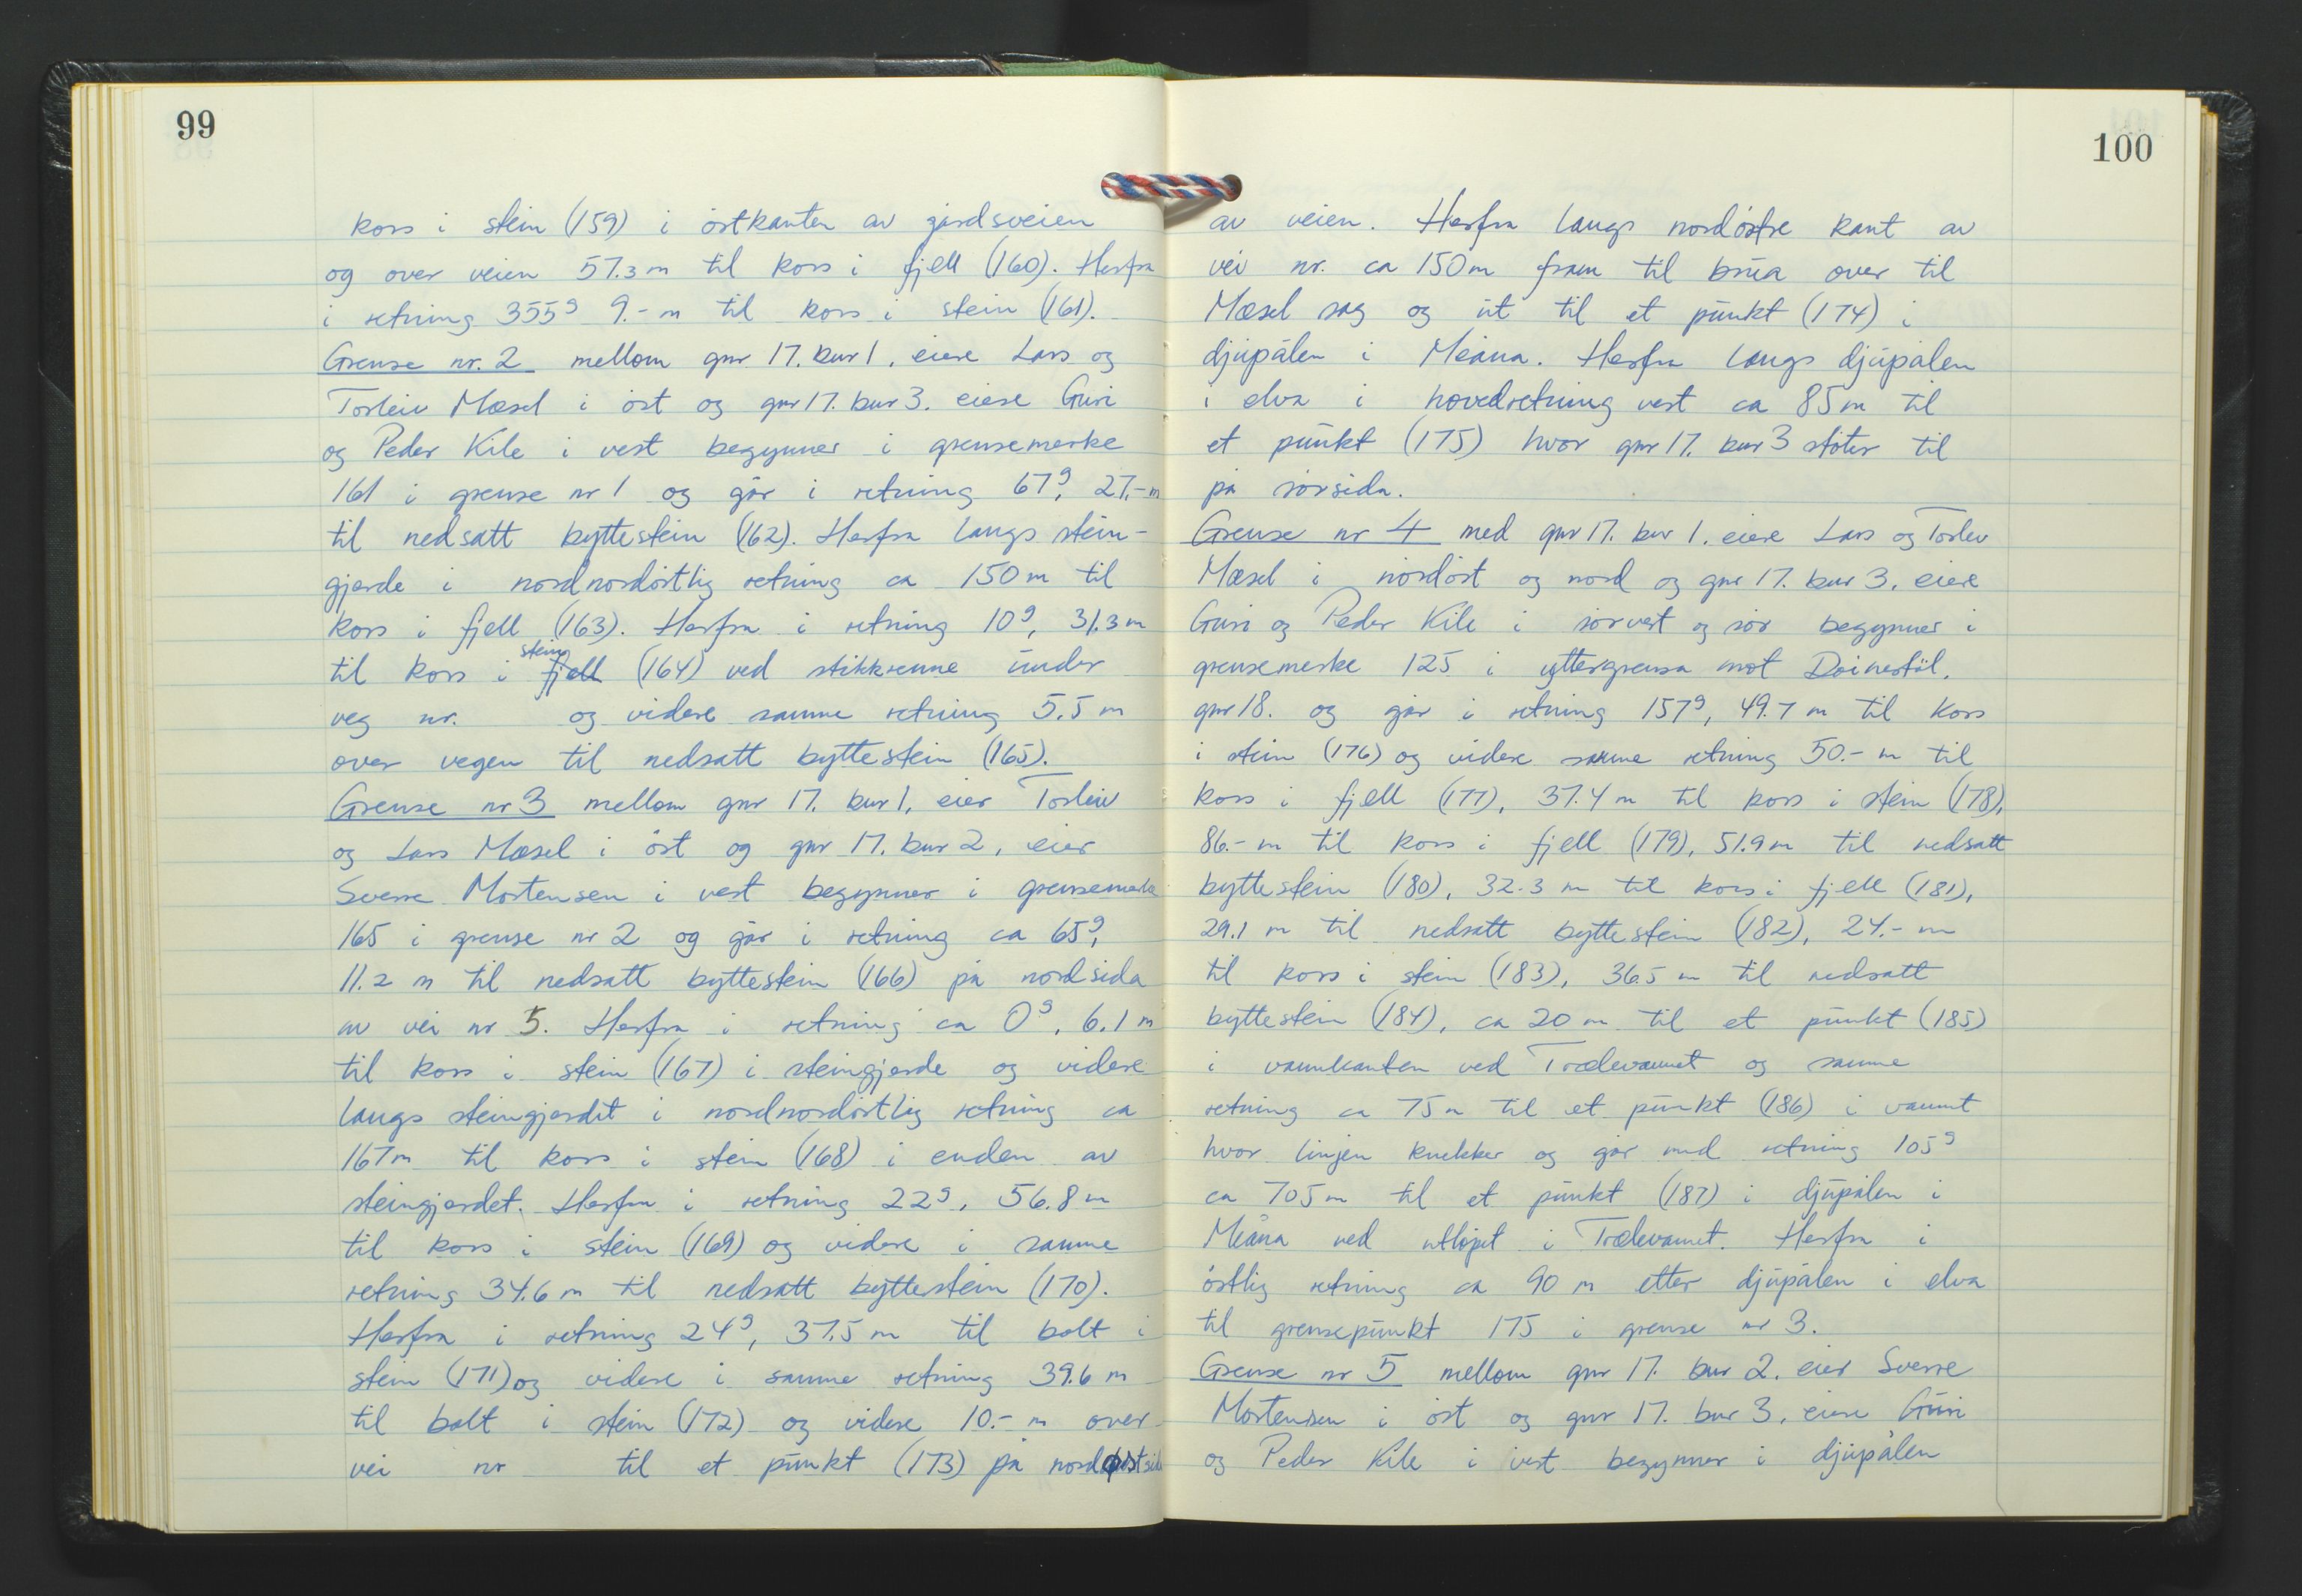 99
kors i stein (159) i östkanten av gårdsveien
og over veien 57.3 m til kors i fjell (160). Herfra
i retning 355g 9.- m til kors i stein (161).
Grense nr. 2 mellom gnr 17. bnr 1. eiere Lars og
Torleiv Mæsel i öst og gnr 17. bnr 3. eiere Guri
og Peder Kile i vest begynner i grensemerke
161 i grense nr 1 og går i retning 67g, 27.- m
til nedsatt byttestein (162). Herfra langs stein-
gjerde i nordnordöstlig retning ca 150 m til
kors i fjell (163). Herfra i retning 10g, 31.3 m
til kors i fjell stein (164) ved stikkrenne under
veg nr. og videre samme retning 5.5 m
over vegen til nedsatt byttestein (165).
Grense nr 3 mellom gnr 17. bnr 1, eier Torleiv
og Lars Mæsel i öst og gnr 17. bnr 2, eier
Sverre Mortensen i vest begynner i grensemerke
165 i grense nr 2 og går i retning ca 65g,
11.2 m til nedsatt byttestein (166) på nordsida
av vei nr 5. Herfra i retning ca 0g, 6.1 m
til kors i stein (167) i steingjerde og videre
langs steingjerdet i nordnordöstlig retning ca
167 m til kors i stein (168) i enden av
steingjerdet. Herfra i retning 22g, 56.8 m
til kors i stein (169) og videre i samme
retning 34.6 m til nedsatt byttestein (170).
Herfra i retning 24g, 37.5 m til bolt i
stein (171) og videre i samme retning 39.6 m
til bolt i stein (172) og videre 10.- m over
vei nr til et punkt (173) på nordøstsida
100
av veien. Herfra langs nordöstre kant av
vei nr. ca 150 m fram til brua over til
Mæsel sag og ut til et punkt (174) i
djupålen i Meåna. Herfra langs djupålen
i elva i hovedretning vest ca 85 m til
et punkt (175) hvor gnr 17. bnr 3 stöter til
på sörsida.
Grense nr 4 med gnr 17. bnr 1. eiere Lars og Torleiv
Mæsel i nordöst og nord og gnr 17. bnr 3. eiere
Guri og Peder Kile i sörvest og sör begynner i
grensemerke 125 i yttergrensa mot Doinestöl,
gnr 18. og går i retning 157g, 49.7 m til kors
i stein (176) og videre samme retning 50.- m til
kors i fjell (177), 37.4 m til kors i stein (178),
86.- m til kors i fjell (179), 51.9 m til nedsatt
byttestein (180), 32.3 m til kors i fjell (181),
29.1 m til nedsatt byttestein (182), 24.- m
til kors i stein (183), 36.5 m til nedsatt
byttestein (184), ca 20 m til et punkt (185)
i vannkanten ved Trælevannet og samme
retning ca 75 m til et punkt (186) i vannet
hvor linjen knekker og går med retning 105g
ca 705 m til et punkt (187) i djupålen i
Meåna ved utløpet i Trælevannet. Herfra i
östlig retning ca 90 m etter djupålen i elva
til grensepunkt 175 i grense nr 3.
Grense nr 5 mellom gnr 17. bnr 2. eier Sverre
Mortensen i öst og gnr 17. bnr 3, eiere Guri
og Peder Kile i vest begynner i djupålen